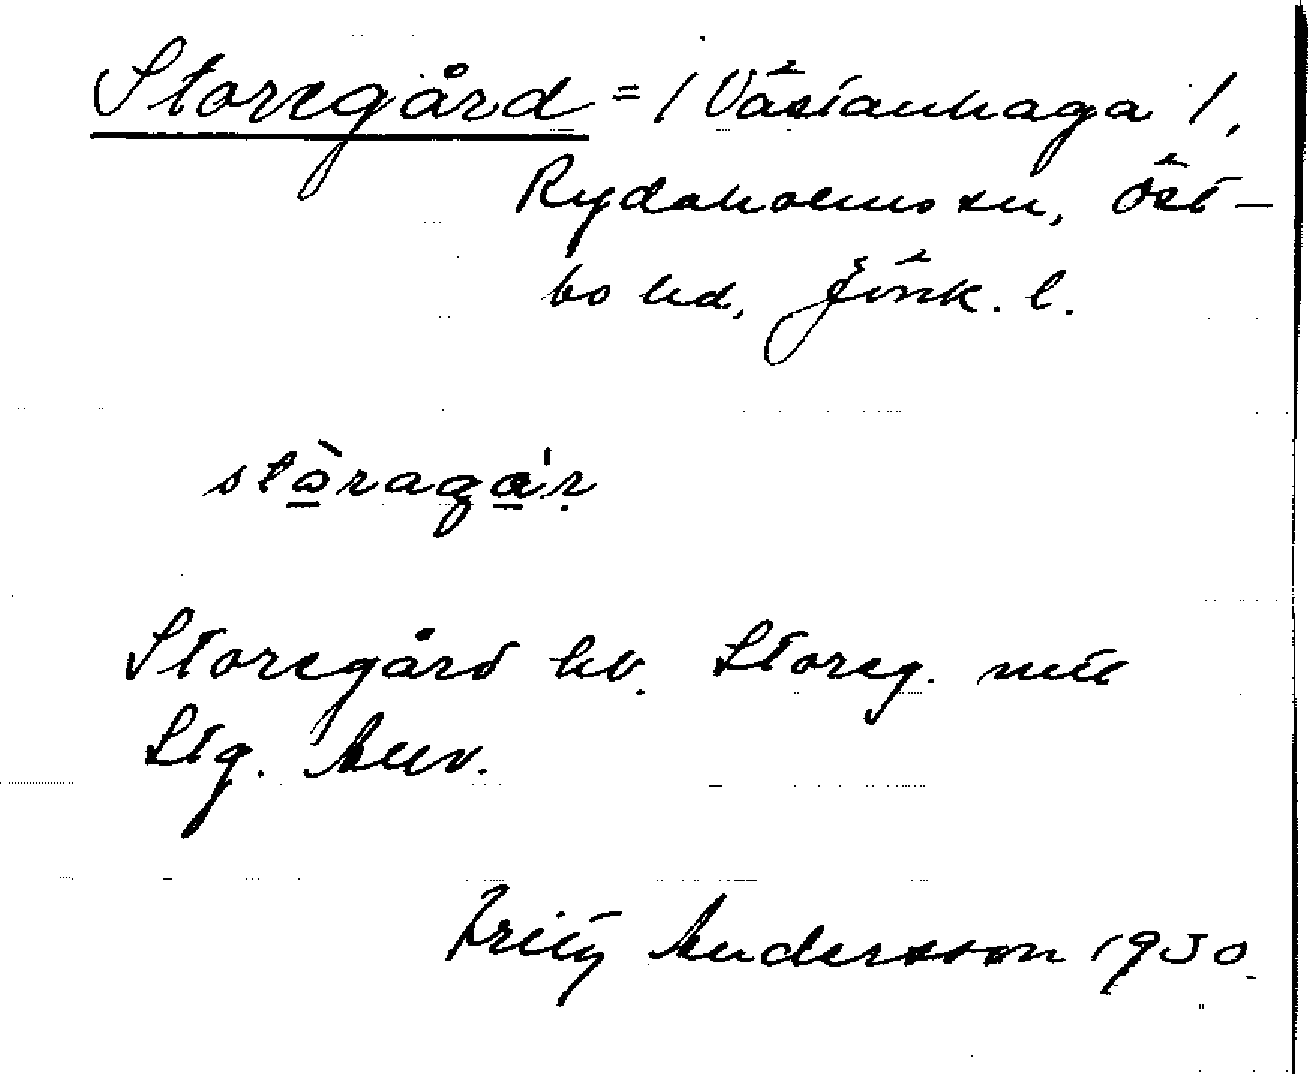 Storegård = / Västanhaga /,
Rydaholms sn, Öst-
bo hd, Jönk. l.
stòragá'r
Storegård hv. Storeg. mtl
Stg. Allv.
Fritz Andersson 1930